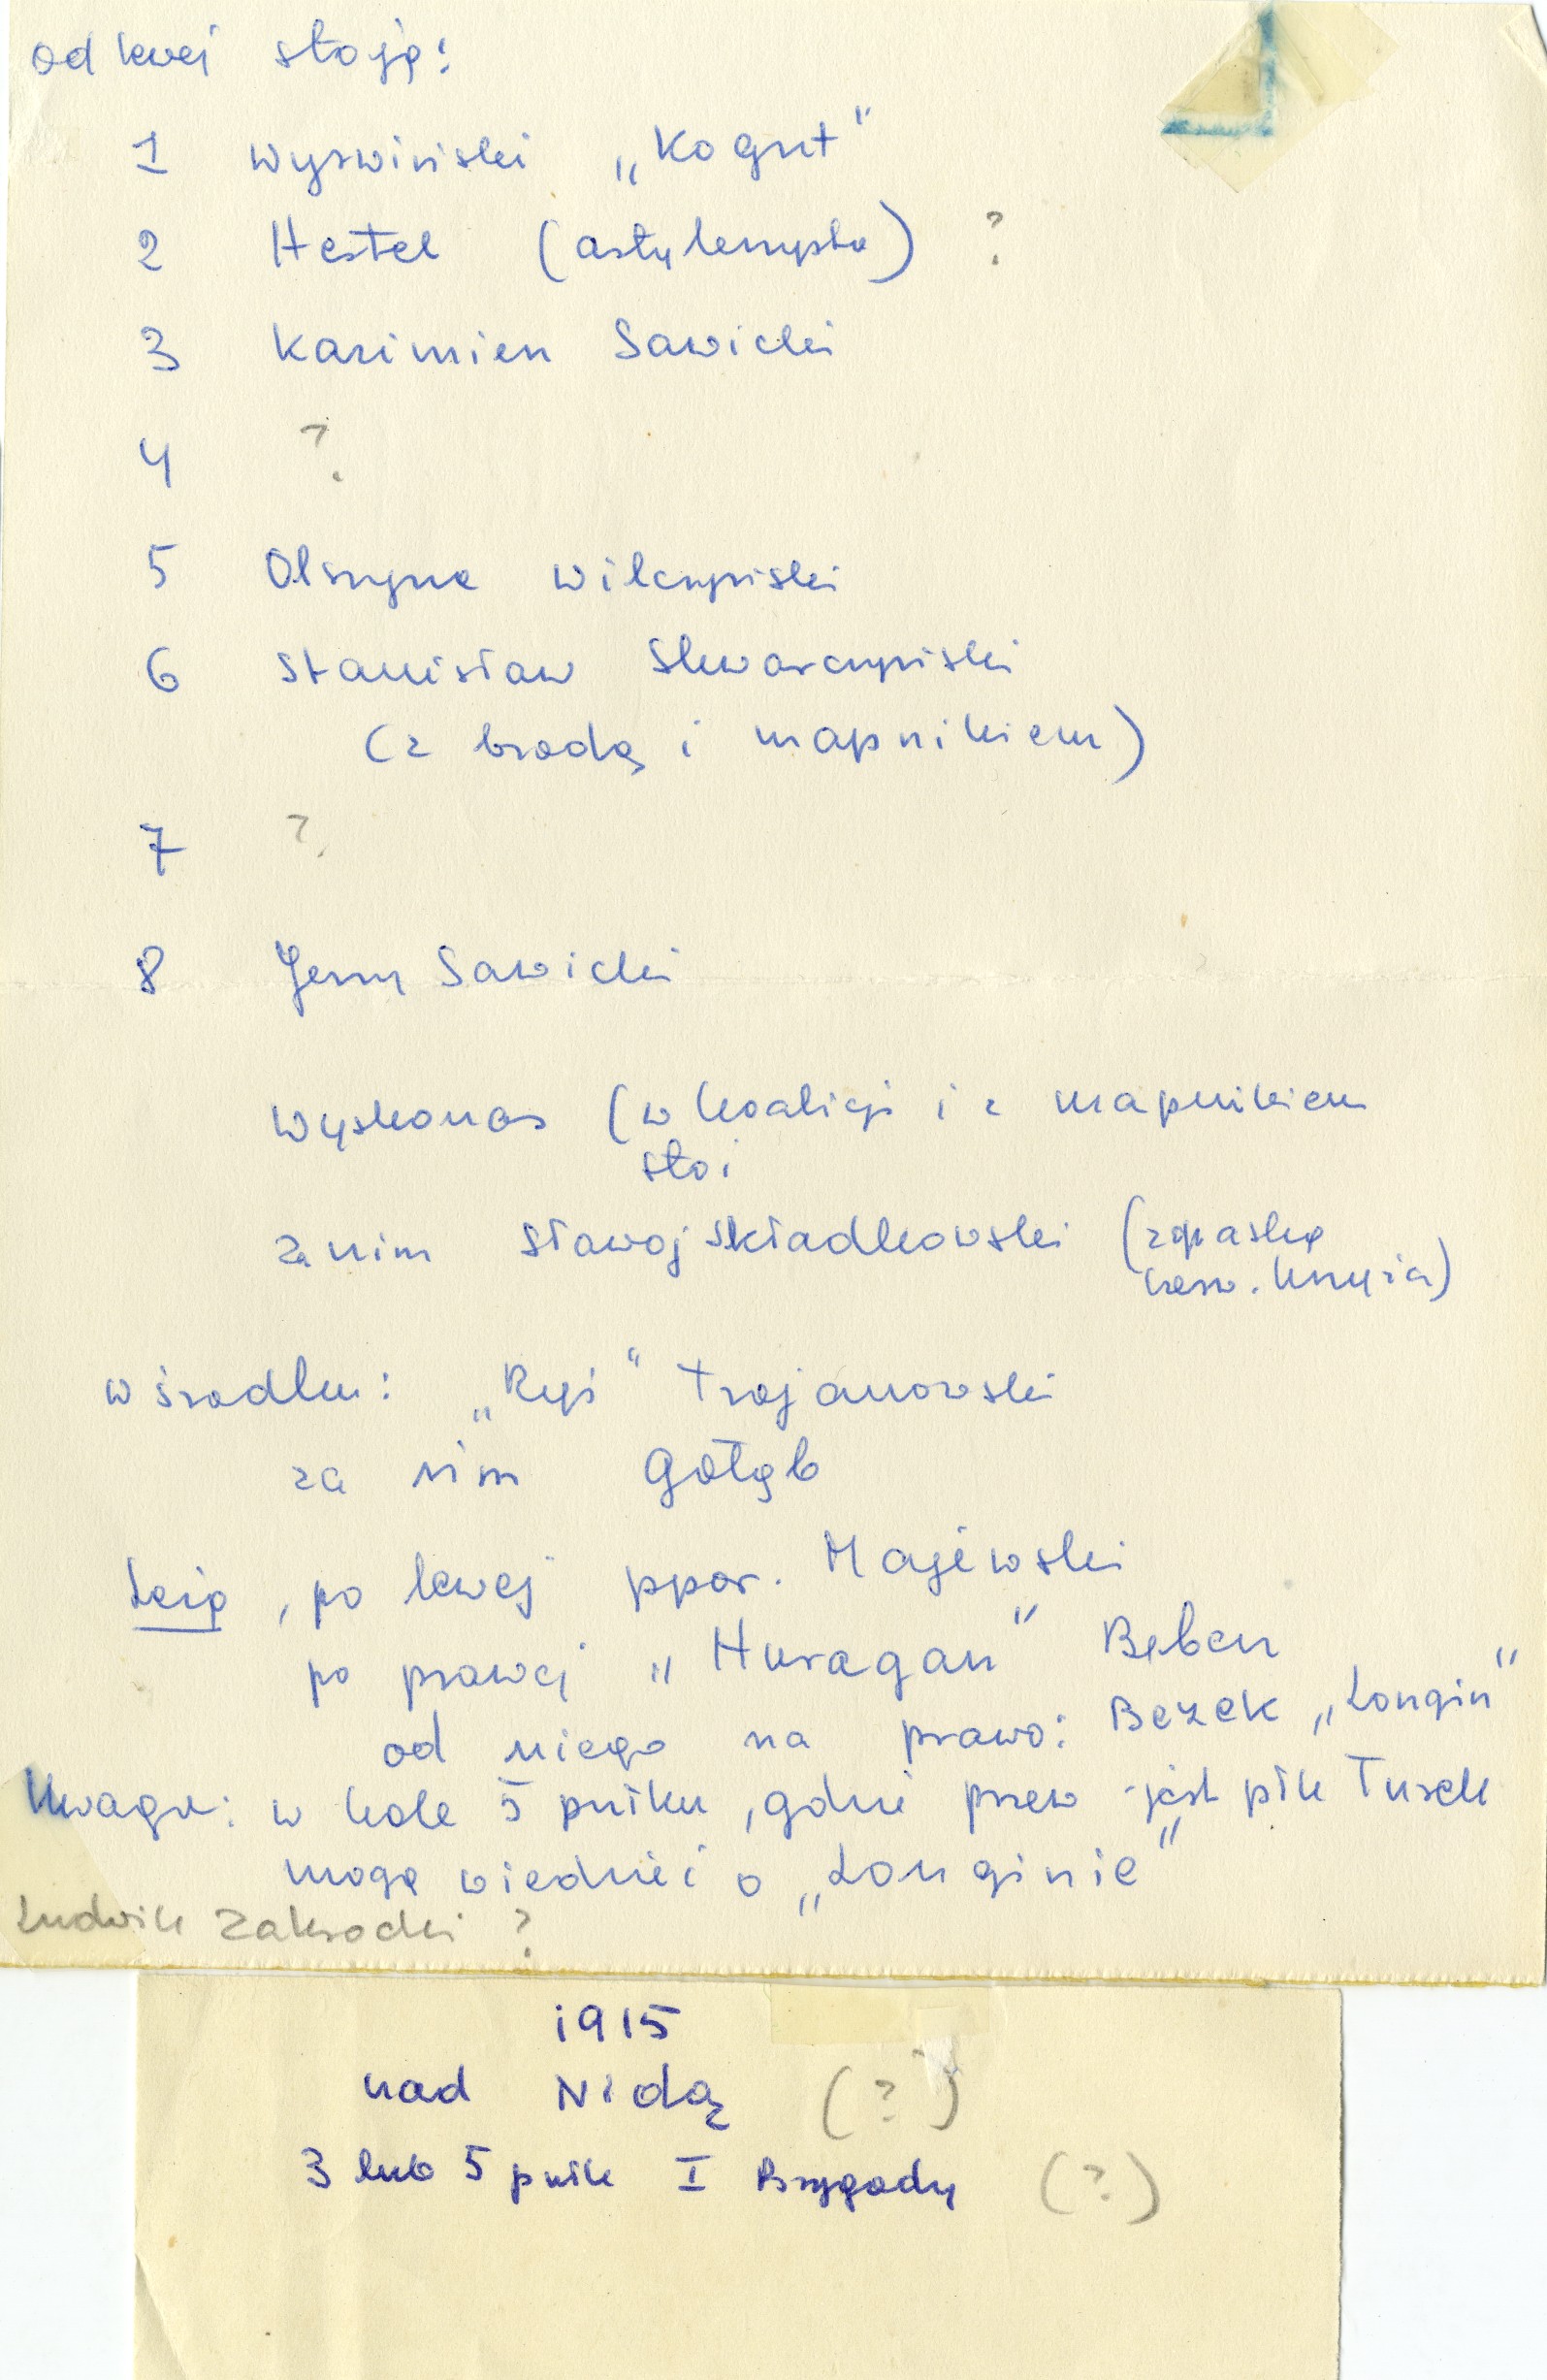 od lewej stoją:
1 Wyrwiński „Kogut"
2 Hertel (artylerzysta) ?
3 Kazimierz Sawicki
4 ?
5 Olszyna Wilczyński
6 Stanisław Skwarczyński
(z brodą i mapnikiem)
7 ?
8 Jerzy Sawicki
Wyskonos (w koalicji i z mapnikiem
stoi
za nim Sławoj Składkowski (z opaską
czerw. krzyża)
w środku: „Ryś" Trojanowski
za nim Gołąb
Leżą, po lewej ppor. Majewski
po prawej „Huragan" Bęben
od niego na prawo: Bezek „Longin"
Uwaga: w kole 5 pułku, gdzie przew jest płk Turek
mogą wiedzieć o „Longinie"
Ludwik Zakrocki ?
1915
nad Nidą (?)
3 lub 5 pułk I Brygady (?)